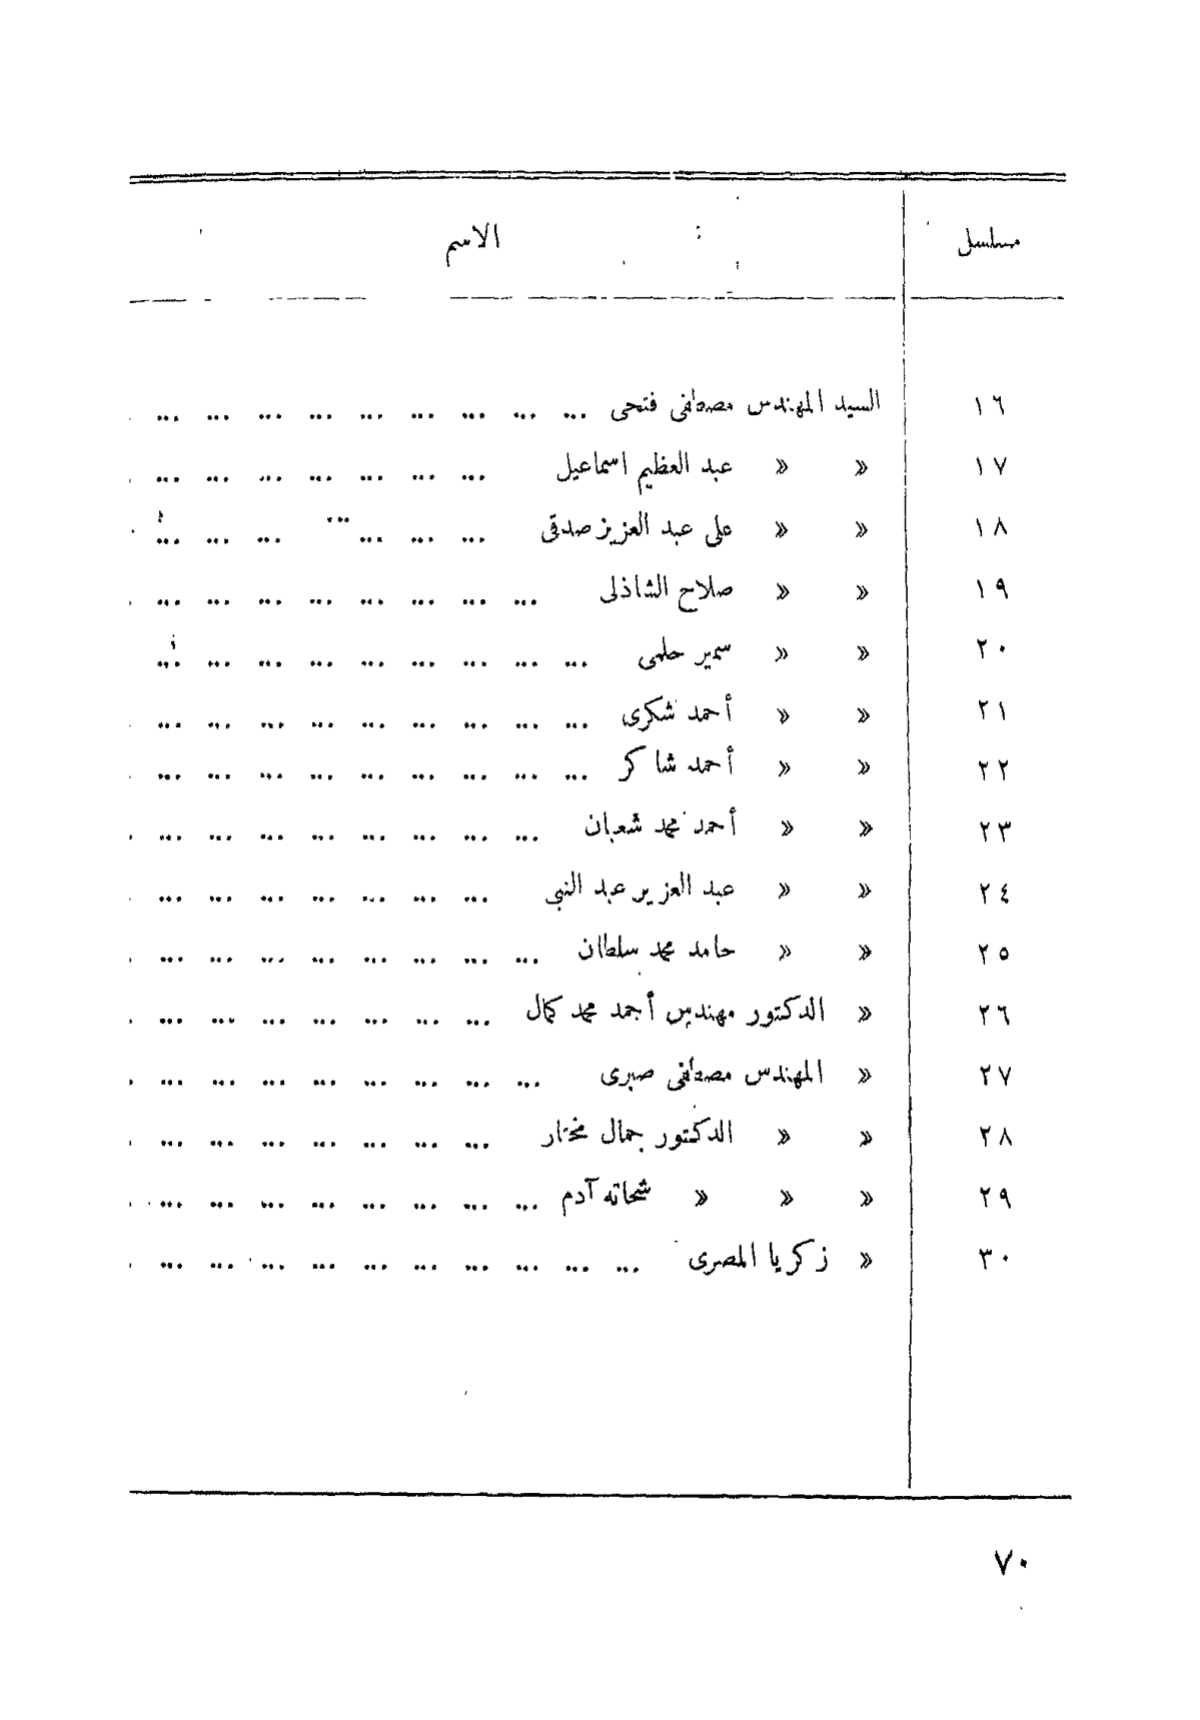 مسلسل الاسم
١٦ السيد المهندس مصطفى فتحى ... ... ... ... ... ... ... ... ...
١٧ » » عبد العظيم اسماعيل ... ... ... ... ... ... ...
١٨ » » على عبد العزيز صدقى ... ... ... ... ... ... ...
١٩ » » صلاح الشاذلى ... ... ... ... ... ... ... ...
٢٠ » » سمير حلمى ... ... ... ... ... ... ... ... ...
٢١ » » أحمد شكرى ... ... ... ... ... ... ... ... ...
٢٢ » » أحمد شاكر ... ... ... ... ... ... ... ... ...
٢٣ » » أحمد محمد شعبان ... ... ... ... ... ... ... ...
٢٤ » » عبد العزيز عبد النبى ... ... ... ... ... ... ...
٢٥ » » حامد محمد سلطان ... ... ... ... ... ... ... ...
٢٦ » الدكتور مهندس أحمد محمد كمال ... ... ... ... ... ... ...
٢٧ » المهندس مصطفى صبرى ... ... ... ... ... ... ... ...
٢٨ » » الدكتور جمال مختار ... ... ... ... ... ... ...
٢٩ » » » شحاته آدم ... ... ... ... ... ... ... ...
٣٠ » زكريا المصرى ... ... ... ... ... ... ... ... ... ...
٧٠